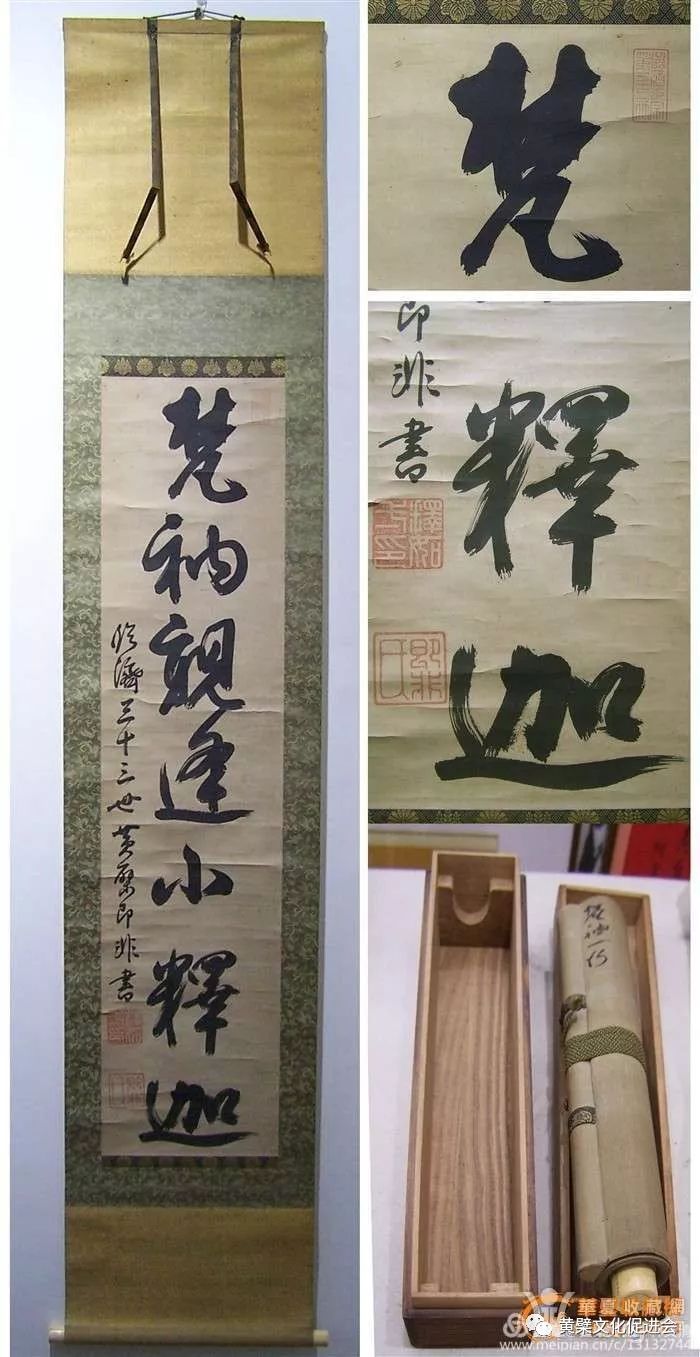 梵衲親逢小釋迦
臨濟三十三世黄檗即非書
梵
釋迦
即非書
即非氏
華夏收藏網
黄檗文化促进会
www.meipian.cn/c/1313274